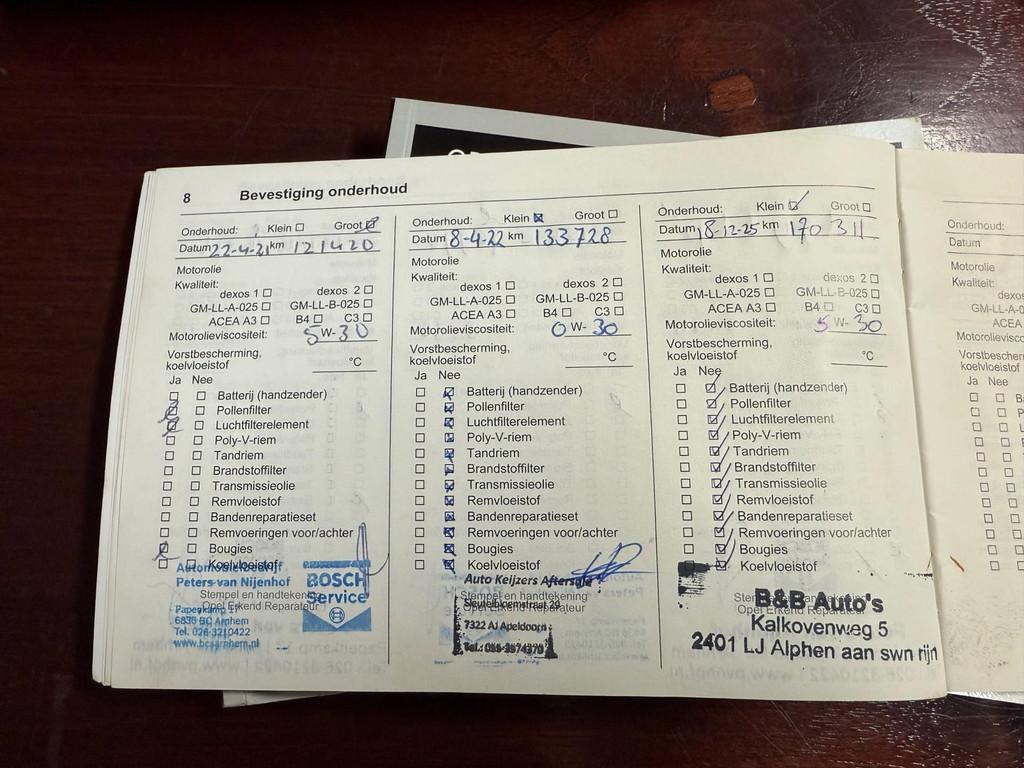 8 Bevestiging onderhoud
Onderhoud: Klein ☐ Groot ☑
Datum 22-4-21 km 121420
Motorolie
Kwaliteit:
dexos 1 ☐ dexos 2 ☐
GM-LL-A-025 ☐ GM-LL-B-025 ☐
ACEA A3 ☐ B4 ☐ C3 ☐
Motorolieviscositeit: 5 W- 30
Vorstbescherming,
koelvloeistof °C
Ja Nee
Batterij (handzender)
Pollenfilter
Luchtfilterelement
Poly-V-riem
Tandriem
Brandstoffilter
Transmissieolie
Remvloeistof
Bandenreparatieset
Remvoeringen voor/achter
Bougies
Koelvloeistof
Automobielbedrijf
Peters van Nijenhof
BOSCH
Service
Stempel en handtekening
Opel Erkend Reparateur
Papenkamp 17
6836 BC Arnhem
Tel. 026-3210422
www.bcarnhem.nl
Onderhoud: Klein ☒ Groot ☐
Datum 8-4-22 km 133728
Motorolie
Kwaliteit:
dexos 1 ☐ dexos 2 ☐
GM-LL-A-025 ☐ GM-LL-B-025 ☐
ACEA A3 ☐ B4 ☐ C3 ☐
Motorolieviscositeit: 0 W- 30
Vorstbescherming,
koelvloeistof °C
Ja Nee
Batterij (handzender)
Pollenfilter
Luchtfilterelement
Poly-V-riem
Tandriem
Brandstoffilter
Transmissieolie
Remvloeistof
Bandenreparatieset
Remvoeringen voor/achter
Bougies
Koelvloeistof
Auto Keijzers Aftersale
Stempel en handtekening
Opel Erkend Reparateur
Sleutelbloemstraat 29
7322 AJ Apeldoorn
Tel.: 055-3574370
Onderhoud: Klein ☑ Groot ☐
Datum 18-12-25 km 170 311
Motorolie
Kwaliteit:
dexos 1 ☐ dexos 2 ☐
GM-LL-A-025 ☐ GM-LL-B-025 ☐
ACEA A3 ☐ B4 ☐ C3 ☐
Motorolieviscositeit: 5 W- 30
Vorstbescherming,
koelvloeistof °C
Ja Nee
Batterij (handzender)
Pollenfilter
Luchtfilterelement
Poly-V-riem
Tandriem
Brandstoffilter
Transmissieolie
Remvloeistof
Bandenreparatieset
Remvoeringen voor/achter
Bougies
Koelvloeistof
Stempel en handtekening
Opel Erkend Reparateur
B&B Auto's
Kalkovenweg 5
2401 LJ Alphen aan swn rijn
Onderhoud:
Datum
Motorolie
Kwaliteit:
GM-LL-A-0
ACEA
Motorolieviscosit
Vorstbescherm
koelvloeistof
Ja Nee